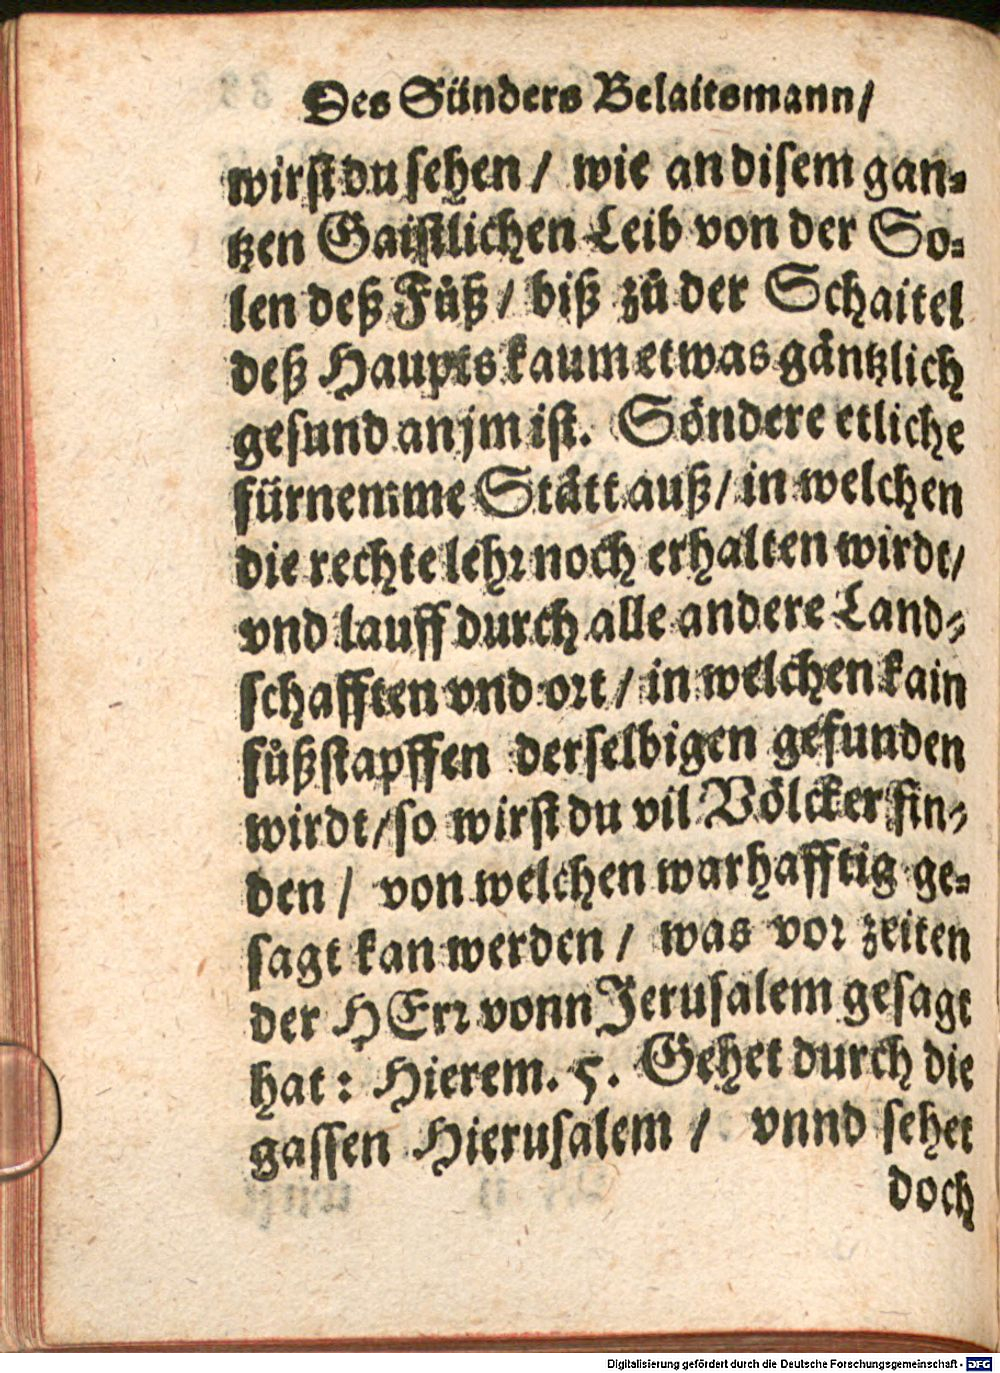 Des Sünders Belaitsmann/
wirst du sehen / wie an disem gan-
tzen Gaistlichen Leib von der So-
len deß Fůß / biß zů der Schaitel
deß Haupts kaum etwas gäntzlich
gesund an jm ist. Söndere etliche
fürnemme Stätt auß / in welchen
die rechte lehr noch erhalten wirdt/
vnd lauff durch alle andere Land-
schafften vnd ort / in welchen kain
fůßstapffen derselbigen gefunden
wirdt/ so wirst du vil Völcker fin-
den / von welchen warhafftig ge-
sagt kan werden / was vor zeiten
der HErr vonn Jerusalem gesagt
hat : Hierem. 5. Gehet durch die
gassen Hierusalem / vnnd sehet
doch
Digitalisierung gefördert durch die Deutsche Forschungsgemeinschaft - DFG